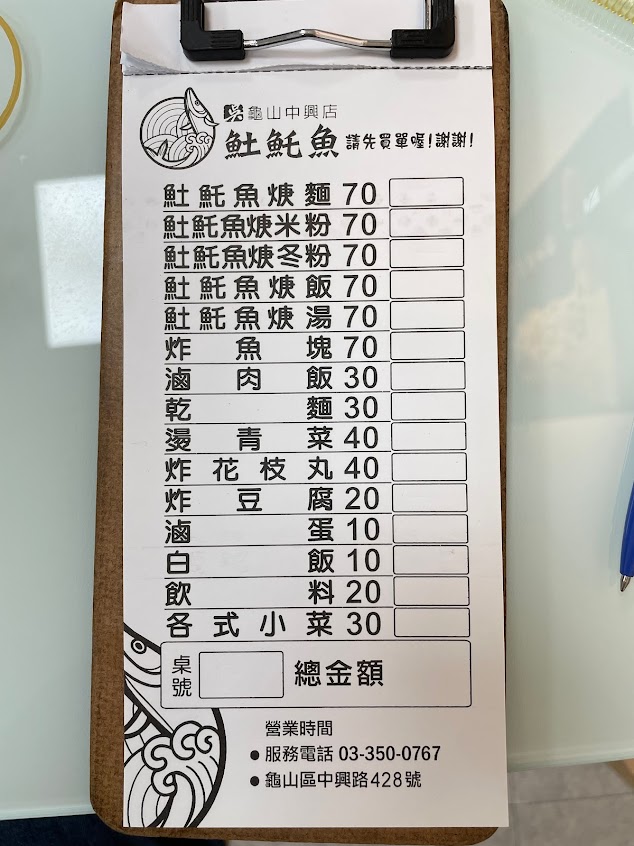 龜山中興店
魠魠魚 請先買單喔!謝謝!
魠魠魚焿麵 70
魠魠魚焿米粉 70
魠魠魚焿冬粉 70
魠魠魚焿飯 70
魠魠魚焿湯 70
炸魚塊 70
滷肉飯 30
乾麵 30
燙青菜 40
炸花枝丸 40
炸豆腐 20
滷蛋 10
白飯 10
飲料 20
各式小菜 30
桌號 總金額
營業時間
● 服務電話 03-350-0767
● 龜山區中興路428號